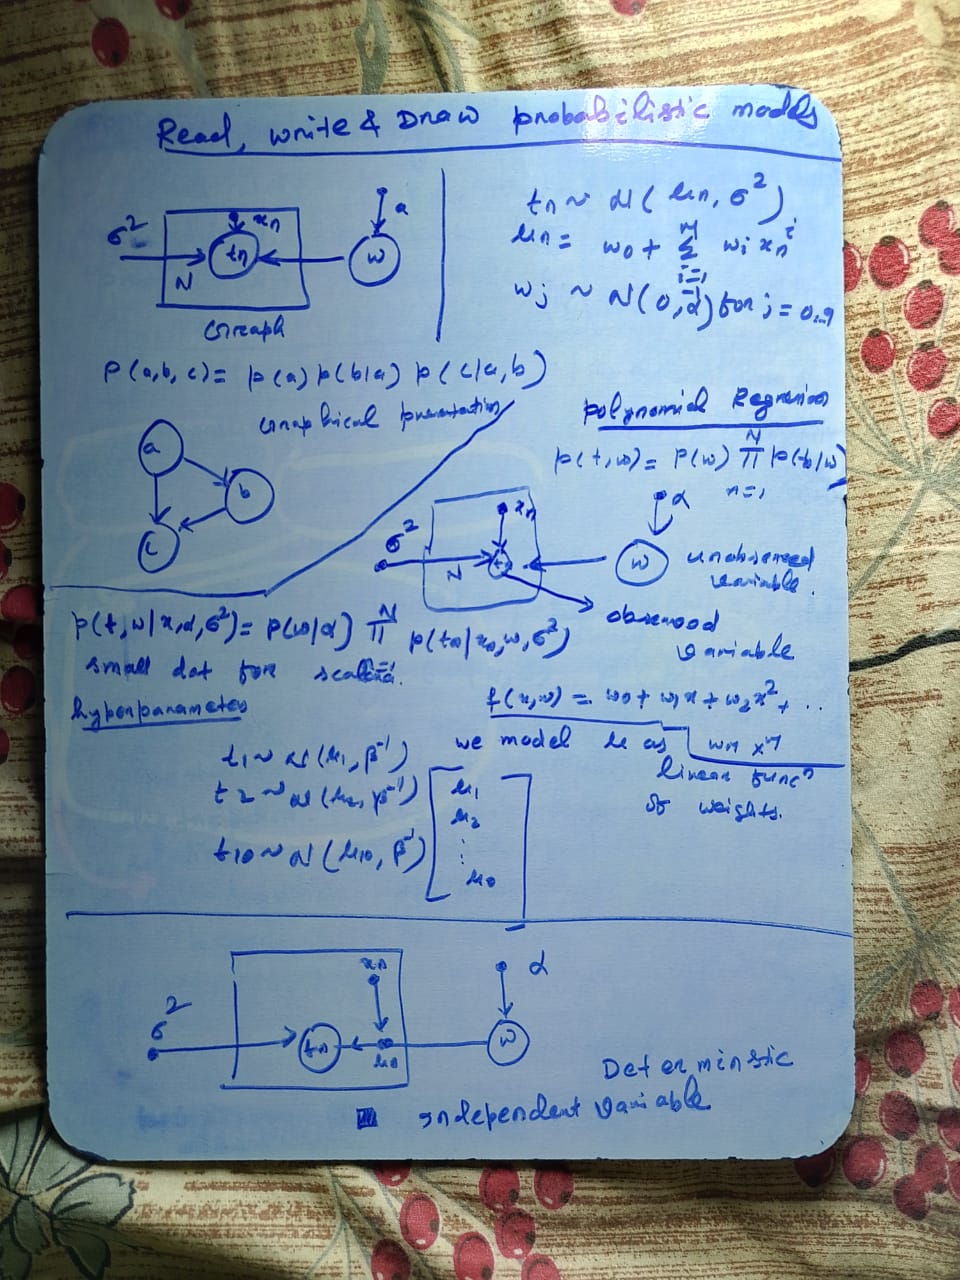 Read, write & Draw probabilistic models
σ² xn a
tn w
N
Graph
tn ~ N(μn, σ²)
μn = w0 + Σ wi xn^i
i=1
wj ~ N(0, α) for j = 0..9
P(a,b,c) = p(a) p(b|a) p(c|a,b)
Graphical
a
b
c
polynomial Regression
p(t,w) = p(w) N Π n=1 p(tn|w)
σ² xn α
N w
unobserved
variable.
observed
variable
p(t,w|x,α,σ²) = p(w|α) N Π p(tn|xn,w,σ²)
small dot for
hyperparameter
f(x,w) = w0 + w1x + w2x² + ..
we model μ as
linear func^n
of weights.
t1 ~ N(μ1, β⁻¹)
t2 ~ N(μ2, β⁻¹)
t10 ~ N(μ10, β⁻¹)
μ1
μ2
⋮
xn α
σ²
tn w
μn
Deterministic
independent variable